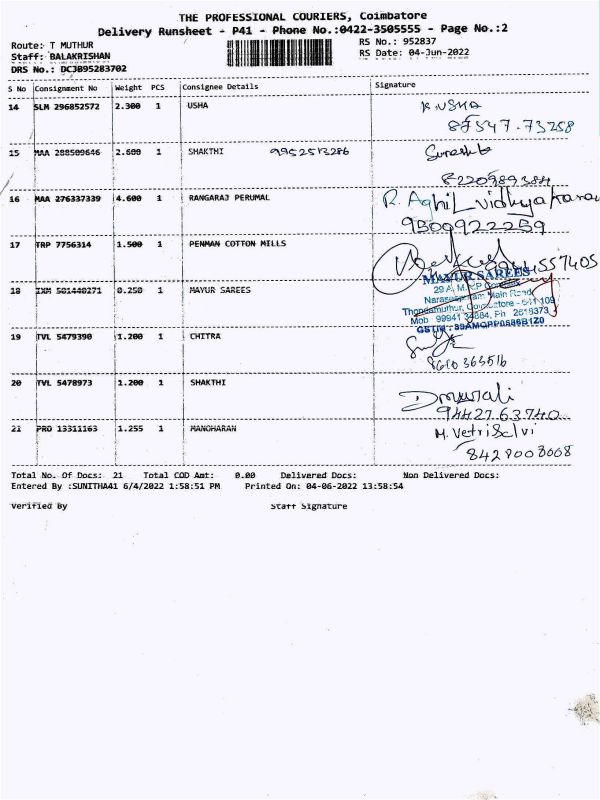 THE PROFESSIONAL COURIERS, Coimbatore
Delivery Runsheet - P41 - Phone No.:0422-3505555 - Page No.:2
Route: T MUTHUR RS No.: 952837
Staff: BALAKRISHAN RS Date: 04-Jun-2022
DRS No.: DCJB95283702
S No Consignment No Weight PCS Consignee Details Signature
14 SLM 296852572 2.300 1 USHA K.USHA
87547.73258
15 MAA 288509646 2.600 1 SHAKTHI 9952513286
8220989384
16 MAA 276337339 4.600 1 RANGARAJ PERUMAL R. Aghil vidhyakaran
9500922259
17 TRP 7756314 1.500 1 PENMAN COTTON MILLS
MAYUR SAREES
18 IXM 501440271 0.250 1 MAYUR SAREES
Main Road
Thondamuthur, Coimbatore - 641 109
Mob 99941 34884, Ph 2618373
19 TVL 5479390 1.200 1 CHITRA
8610365516
20 TVL 5478973 1.200 1 SHAKTHI Dmurali
9442763740
21 PRO 13311163 1.255 1 MANOHARAN M. Vetri Selvi
8428008008
Total No. Of Docs: 21 Total COD Amt: 0.00 Delivered Docs: Non Delivered Docs:
Entered By :SUNITHA41 6/4/2022 1:58:51 PM Printed On: 04-06-2022 13:58:54
Verified By Staff Signature